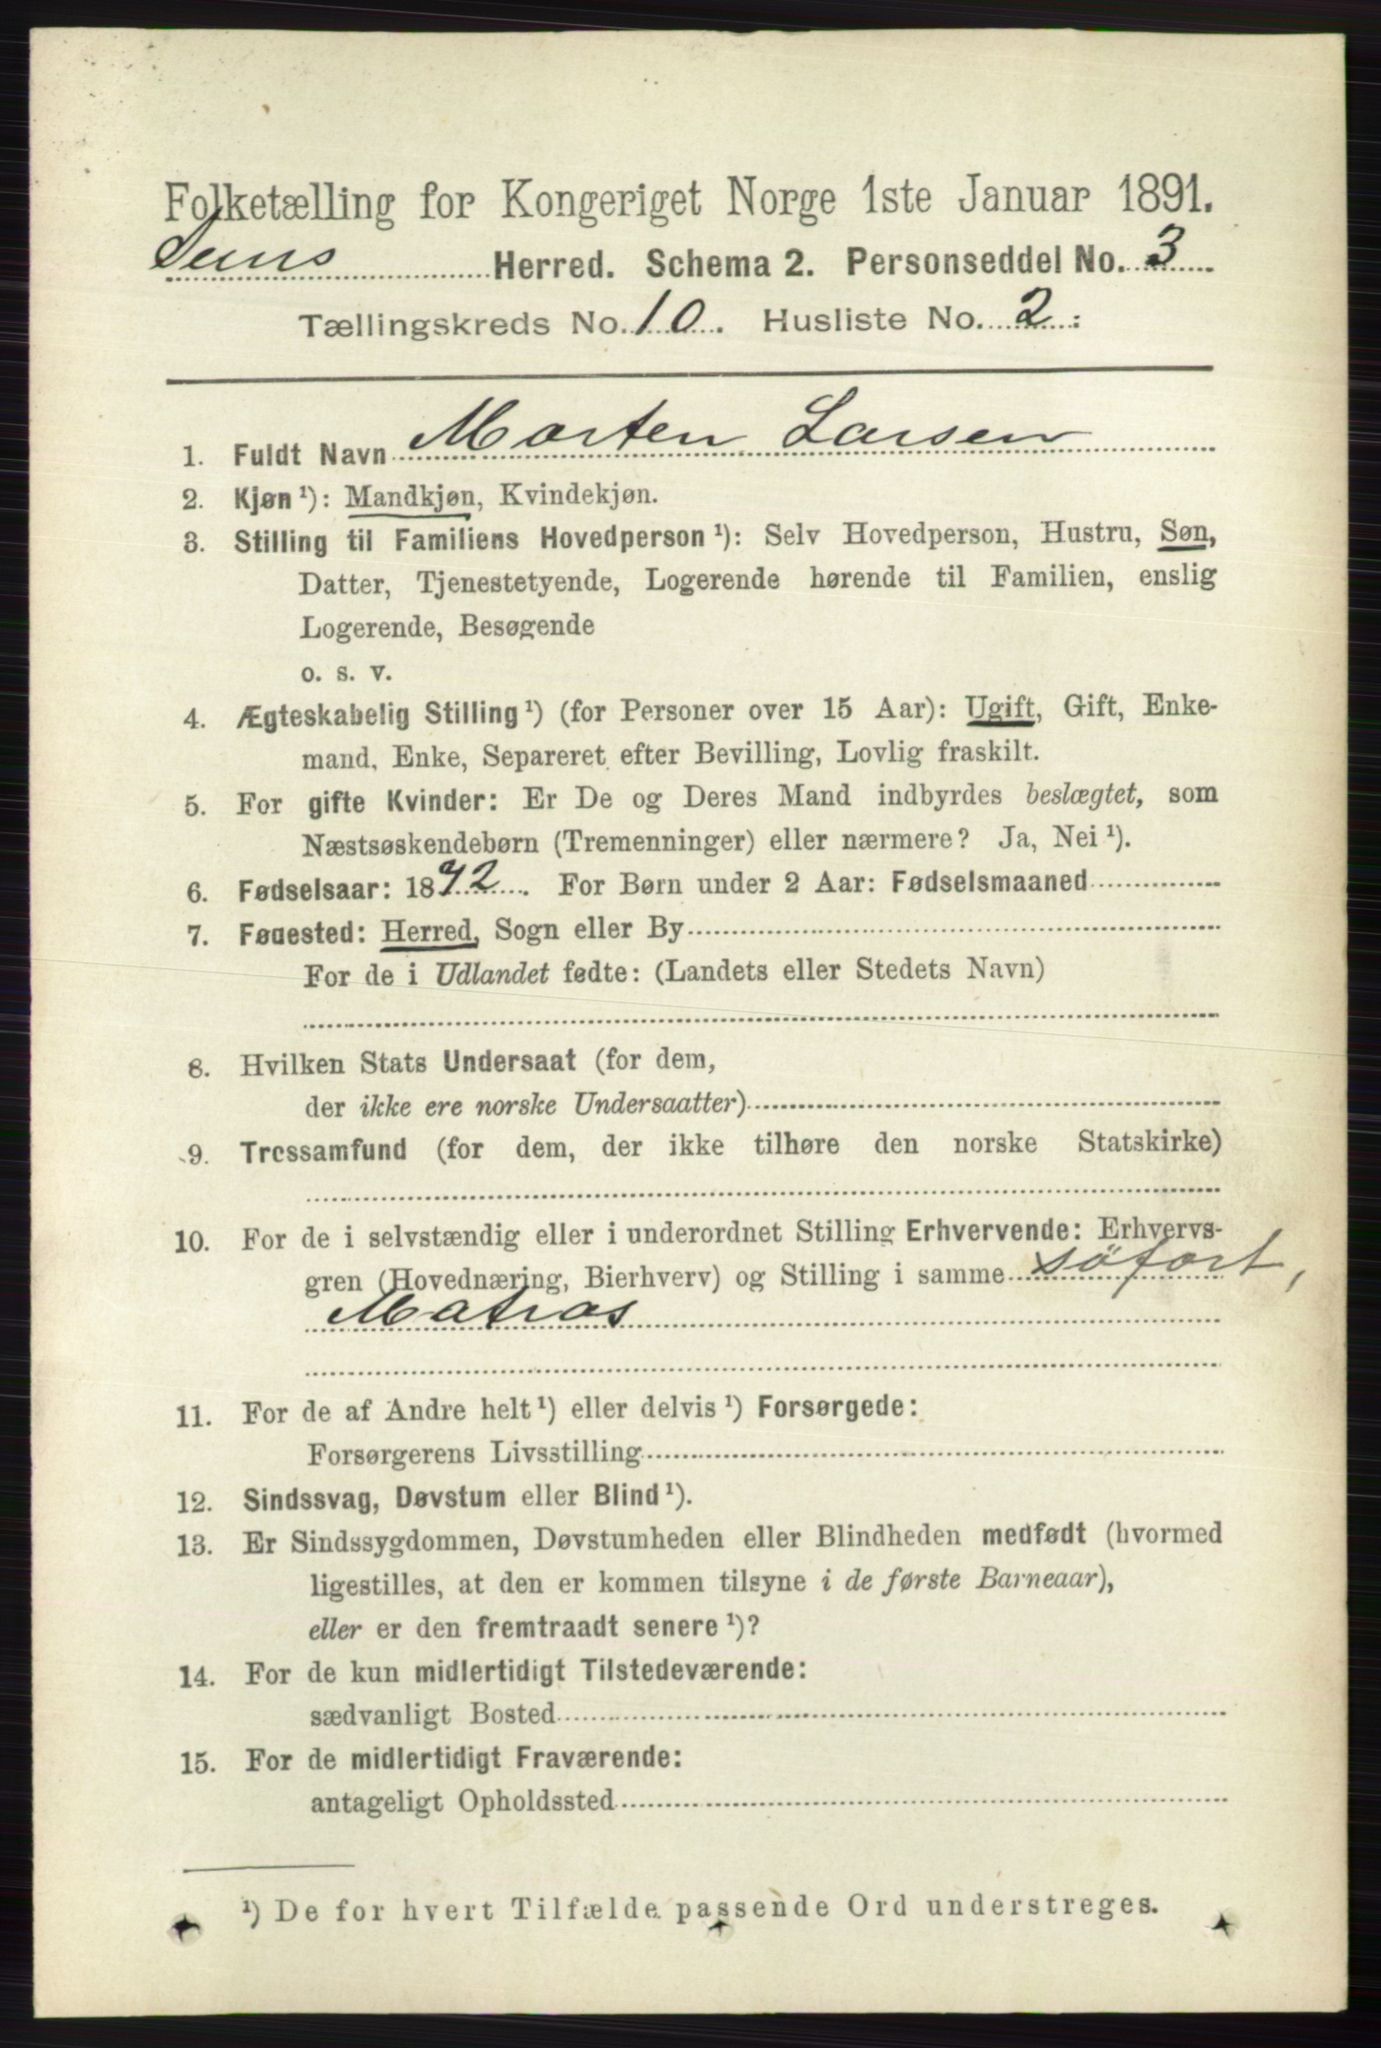 Folketælling for Kongeriget Norge 1ste Januar 1891.
Sems Herred. Schema 2. Personseddel No. 3
Tællingskreds No. 10. Husliste No. 2.
1. Fuldt Navn Morten Larsen
2. Kjøn ¹): Mandkjøn, Kvindekjøn.
3. Stilling til Familiens Hovedperson ¹): Selv Hovedperson, Hustru, Søn,
Datter, Tjenestetyende, Logerende hørende til Familien, enslig
Logerende, Besøgende
o. s. v.
4. Ægteskabelig Stilling ¹) (for Personer over 15 Aar): Ugift, Gift, Enke-
mand, Enke, Separeret efter Bevilling, Lovlig fraskilt.
5. For gifte Kvinder: Er De og Deres Mand indbyrdes beslægtet, som
Næstsøskendebørn (Tremenninger) eller nærmere? Ja, Nei ¹).
6. Fødselsaar: 1872. For Børn under 2 Aar: Fødselsmaaned
7. Fødested: Herred, Sogn eller By
For de i Udlandet fødte: (Landets eller Stedets Navn)
8. Hvilken Stats Undersaat (for dem,
der ikke ere norske Undersaatter)
9. Trossamfund (for dem, der ikke tilhøre den norske Statskirke)
10. For de i selvstændig eller i underordnet Stilling Erhvervende: Erhvervs-
gren (Hovednæring, Bierhverv) og Stilling i samme söfart,
Matros
11. For de af Andre helt ¹) eller delvis ¹) Forsørgede:
Forsørgerens Livsstilling
12. Sindssvag, Døvstum eller Blind ¹).
13. Er Sindssygdommen, Døvstumheden eller Blindheden medfødt (hvormed
ligestilles, at den er kommen tilsyne i de første Barneaar),
eller er den fremtraadt senere ¹)?
14. For de kun midlertidigt Tilstedeværende:
sædvanligt Bosted
15. For de midlertidigt Fraværende:
antageligt Opholdssted
¹) De for hvert Tilfælde passende Ord understreges.